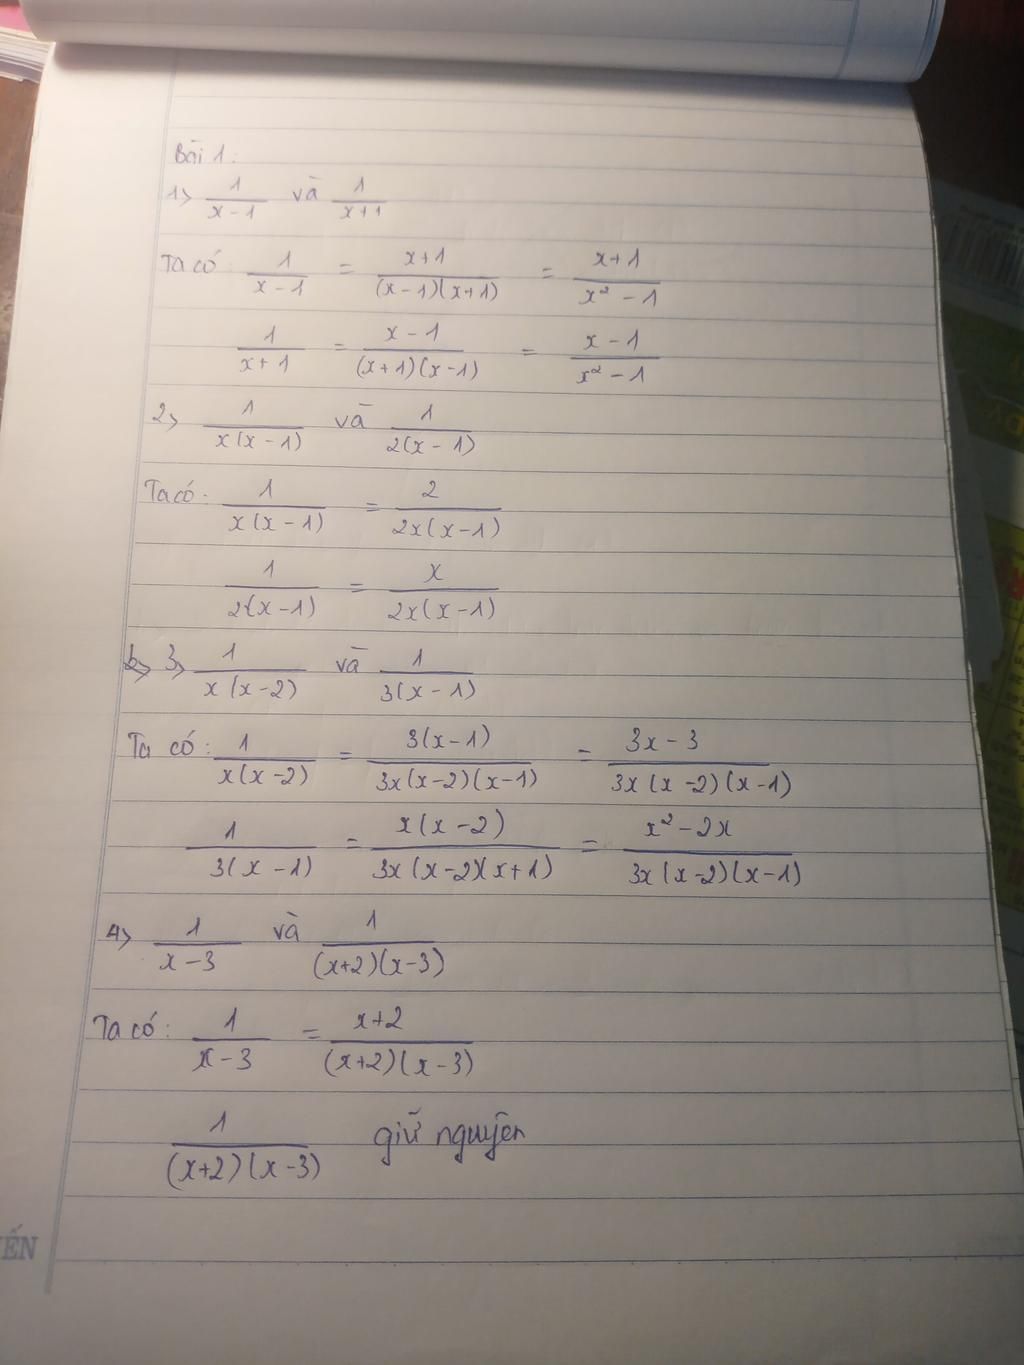 Bài 1:
1> 1/(x-1) và 1/(x+1)
Ta có: 1/(x-1) = (x+1)/((x-1)(x+1)) = (x+1)/(x²-1)
1/(x+1) = (x-1)/((x+1)(x-1)) = (x-1)/(x²-1)
2> 1/(x(x-1)) và 1/(2(x-1))
Ta có: 1/(x(x-1)) = 2/(2x(x-1))
1/(2(x-1)) = x/(2x(x-1))
3> 1/(x(x-2)) và 1/(3(x-1))
Ta có: 1/(x(x-2)) = 3(x-1)/(3x(x-2)(x-1)) = (3x-3)/(3x(x-2)(x-1))
1/(3(x-1)) = x(x-2)/(3x(x-2)(x+1)) = (x²-2x)/(3x(x-2)(x-1))
4> 1/(x-3) và 1/((x+2)(x-3))
Ta có: 1/(x-3) = (x+2)/((x+2)(x-3))
1/((x+2)(x-3)) giữ nguyên
ẾN